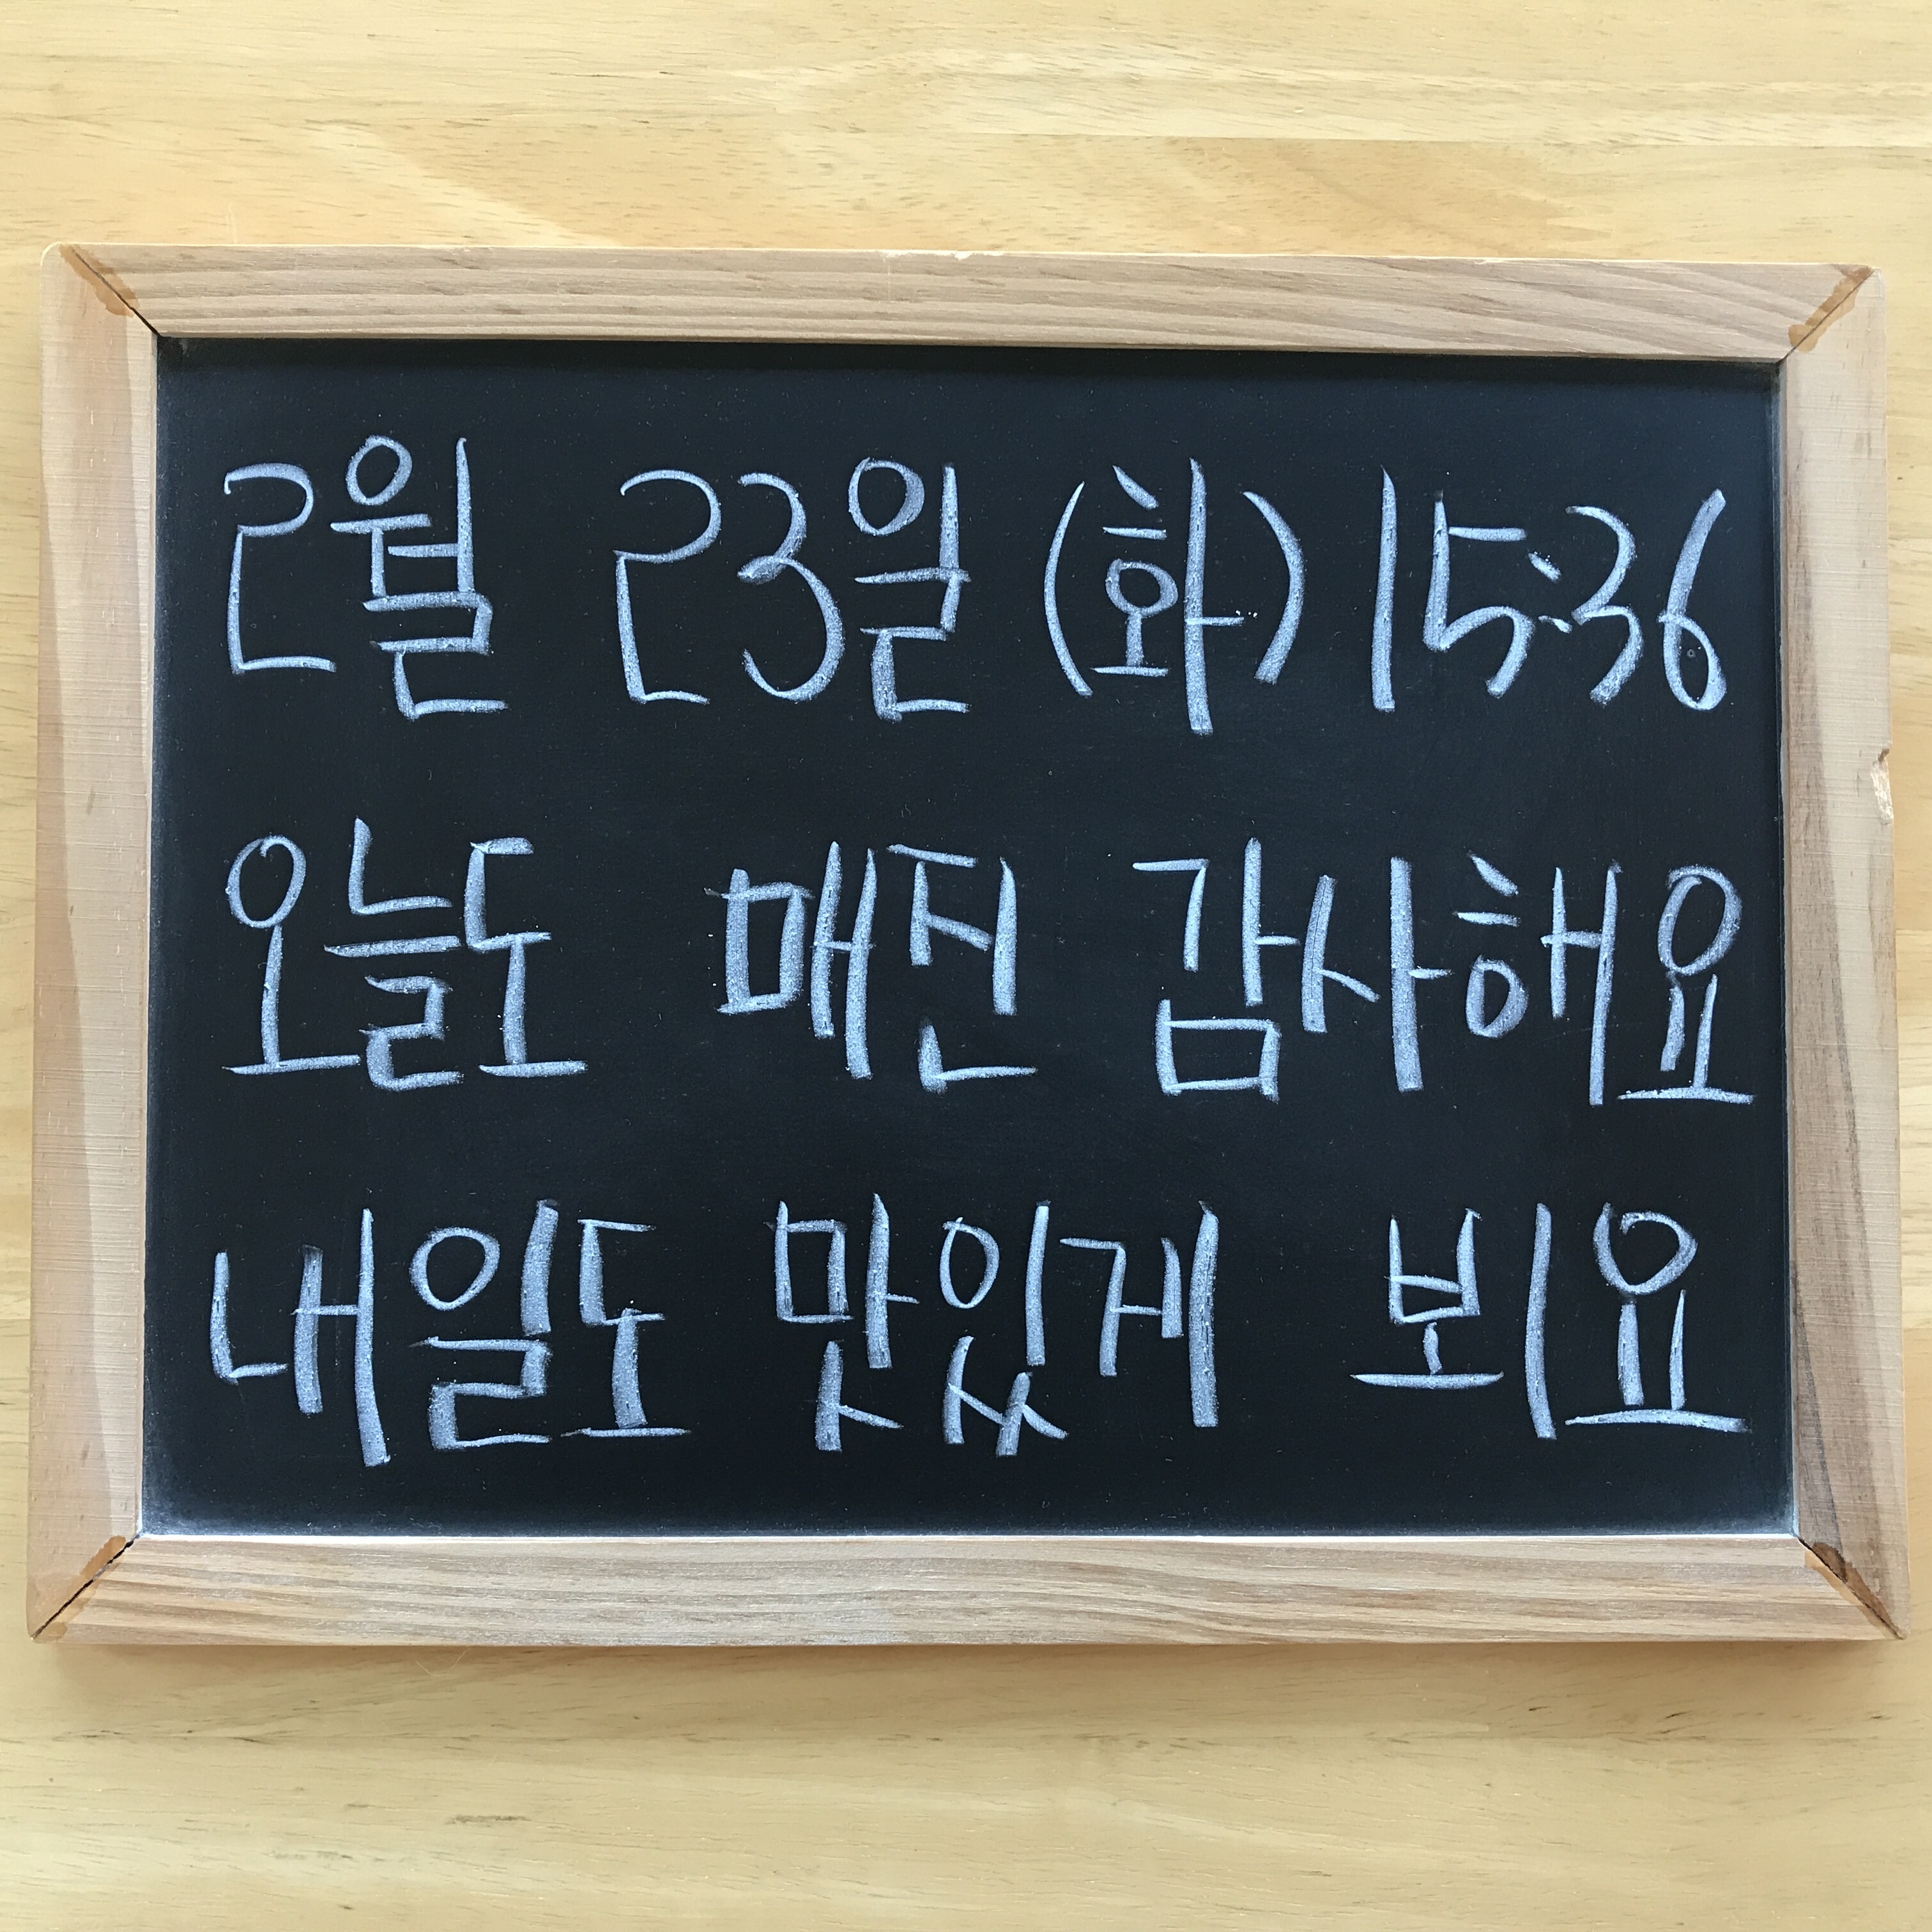 2월 23일 (화) 15:36
오늘도 매진 감사해요
내일도 맛있게 뵈요